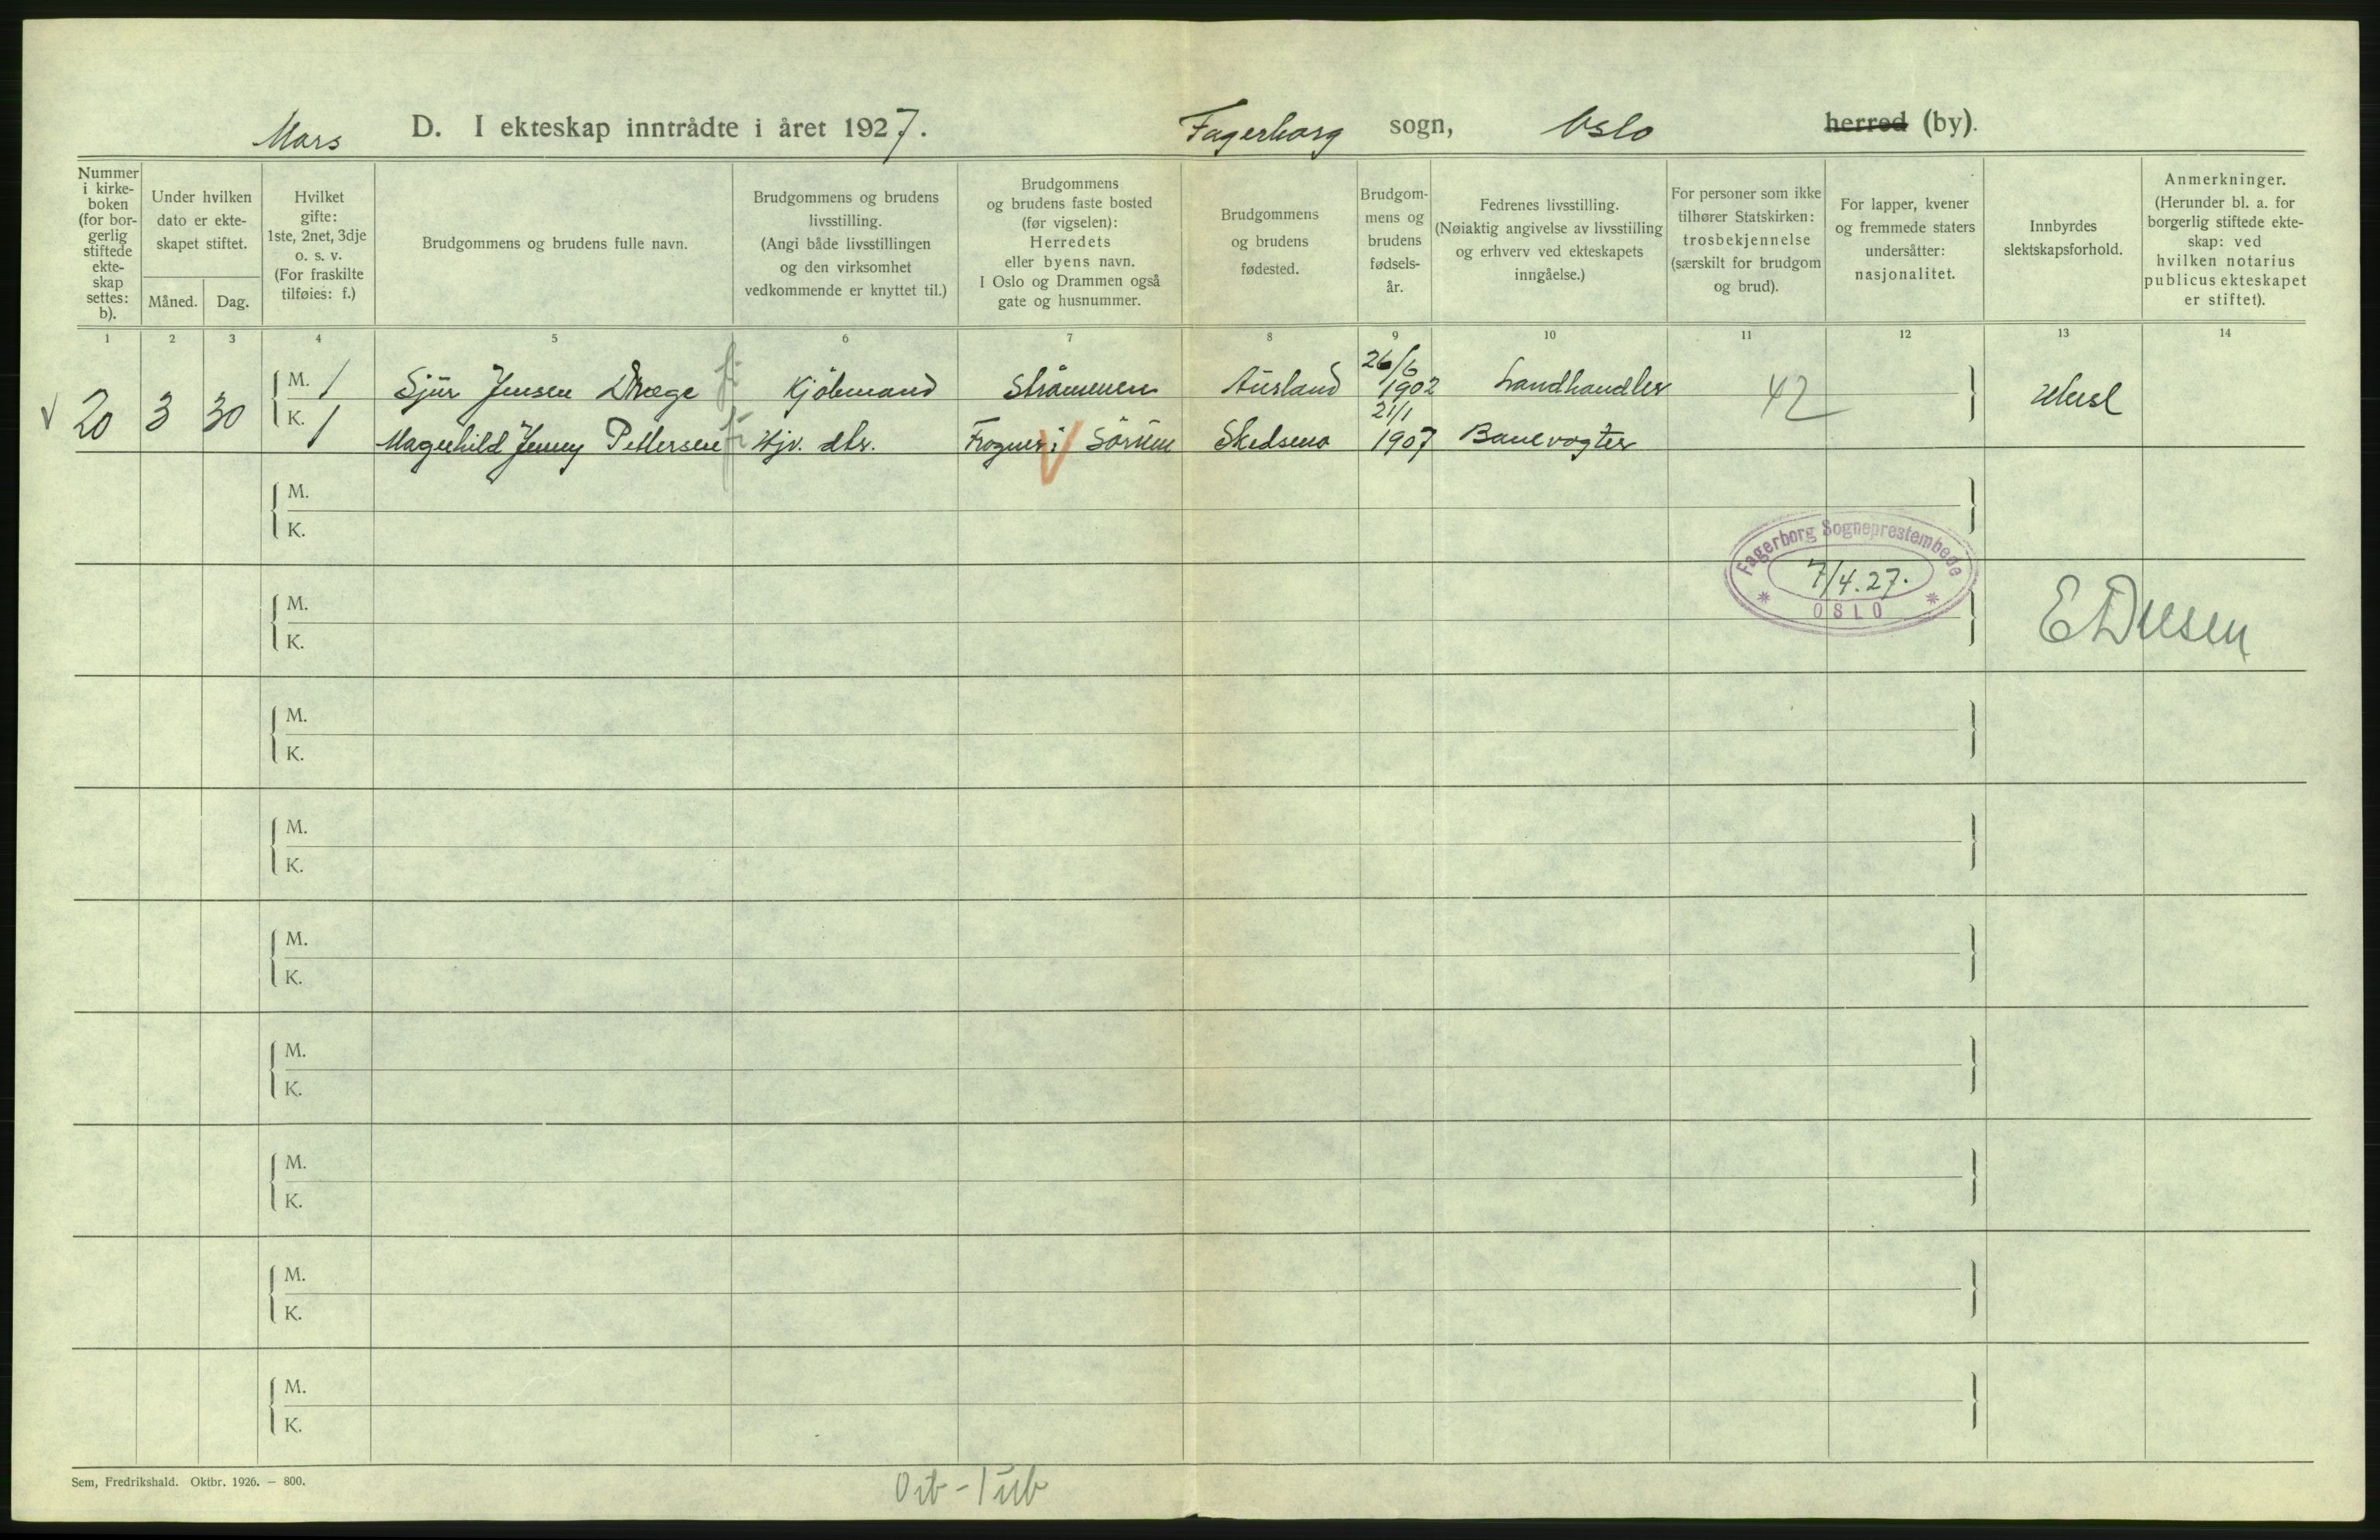 Mars D. I ekteskap inntrådte i året 1927. Fagerborg sogn, Oslo herred (by).
Nummer i kirkeboken (for borgerlig stiftede ekteskap settes: b).
Under hvilken dato er ekteskapet stiftet.
Måned. Dag.
Hvilket gifte: 1ste, 2net, 3dje o. s. v. (For fraskilte tilføies: f.)
Brudgommens og brudens fulle navn.
Brudgommens og brudens livsstilling. (Angi både livsstillingen og den virksomhet vedkommende er knyttet til.)
Brudgommens og brudens faste bosted (før vigselen): Herredets eller byens navn. I Oslo og Drammen også gate og husnummer.
Brudgommens og brudens fødested.
Brudgommens og brudens fødselsår.
Fedrenes livsstilling. (Nøiaktig angivelse av livsstilling og erhverv ved ekteskapets inngåelse.)
For personer som ikke tilhører Statskirken: trosbekjennelse (særskilt for brudgom og brud).
For lapper, kvener og fremmede staters undersåtter: nasjonalitet.
Innbyrdes slektskapsforhold.
Anmerkninger. (Herunder bl. a. for borgerlig stiftede ekteskap: ved hvilken notarius publicus ekteskapet er stiftet).
1 2 3 4 5 6 7 8 9 10 11 12 13 14
20 3 30
M. 1 Sjur Jensen Dræge Kjöbmand Strömmen Aurland 26/6 1902 Landhandler 42 Ubesl
K. 1 Magnhild Jenny Pettersen Hjv. dtr. Frogner i Sörum Skedsmo 21/1 1907 Banevogter
M.
K.
Fagerborg Sogneprestembede
7/4.27.
OSLO
M.
K.
M.
K.
M.
K.
M.
K.
M.
K.
M.
K.
M.
K.
M.
K.
Sem, Fredrikshald. Oktbr. 1926. — 800.